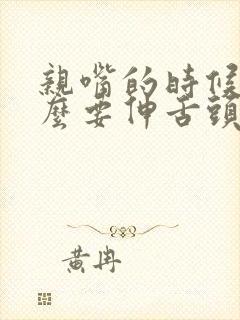 親嘴的時候
麼要伸舌頭
黃冉